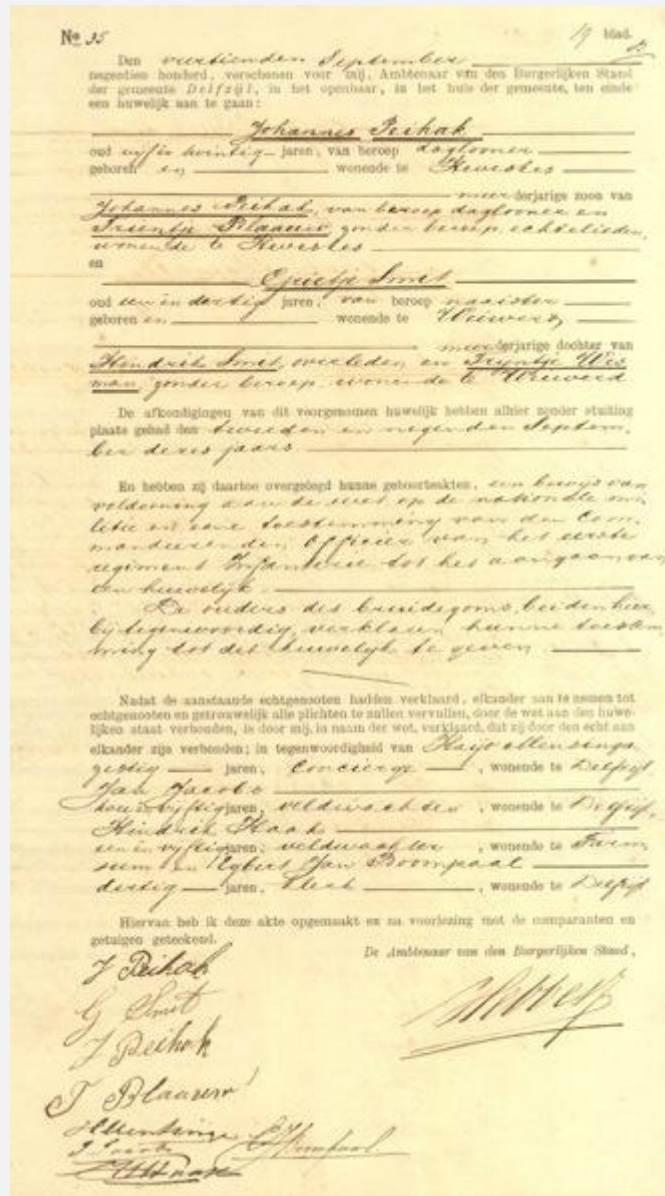 No 35 19 blad.
Den veertienden September
negentien honderd, verschenen voor mij, Ambtenaar van den Burgerlijken Stand
der gemeente Delfzijl, in het openbaar, in het huis der gemeente, ten einde
een huwelijk aan te gaan:
Johannes Peihak
oud vijf en twintig jaren, van beroep daglooner
geboren en wonende te
meerderjarige zoon van
Johannes Peihak, van beroep daglooner en
Trientje Blaauw, zonder beroep, echtelieden,
wonende te
en
Smit
oud een en dertig jaren, van beroep naaister
geboren en wonende te Weiwerd,
meerderjarige dochter van
Hendrik Smit, overleden en Tryntje Wes
man, zonder beroep, wonende te Weiwerd
De afkondigingen van dit voorgenomen huwelijk hebben alhier zonder stuiting
plaats gehad den tweeden en negenden Septem,
ber dezes jaars.
En hebben zij daartoe overgelegd hunne geboorteakten, een bewijs van
voldoening aan de wet op de nationale mi
litie en eene toestemming van den Com
mandeerenden Officier van het eerste
regiment Infanterie tot het aangaan van
een huwelijk.
De ouders des bruidegoms, beiden hier,
bij tegenwoordig, verklaren hunne toestem
ming tot dit huwelijk te geven.
Nadat de aanstaande echtgenooten hadden verklaard, elkander aan te nemen tot
echtgenooten en getrouwelijk alle plichten te zullen vervullen, door de wet aan den huwe-
lijken staat verbonden, is door mij, in naam der wet, verklaard, dat zij door den echt aan
elkander zijn verbonden; in tegenwoordigheid van Mensinga
zestig jaren, Concierge, wonende te Delfzijl
Jan Jacobs
vijftig jaren, veldwachter, wonende te Delfzijl,
Hindrik Haak
een en vijftig jaren, veldwachter, wonende te Farm
sum en Egbert Jan Boompaal
dertig jaren, klerk, wonende te Delfzijl
Hiervan heb ik deze akte opgemaakt en na voorlezing met de comparanten en
getuigen geteekend.
De Ambtenaar van den Burgerlijken Stand,
J Peihak
G Smit
J Peihak
T Blaauw
HMensinga
J Jacobs EJBoompaal
HHaak